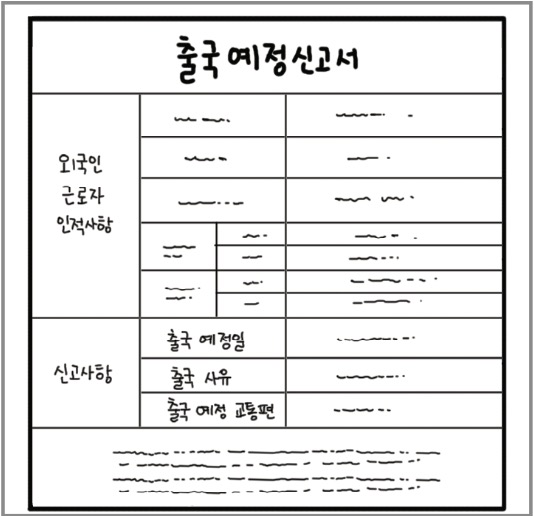 출국 예정신고서
외국인
근로자
인적사항
신고사항
출국 예정일
출국 사유
출국 예정 교통편